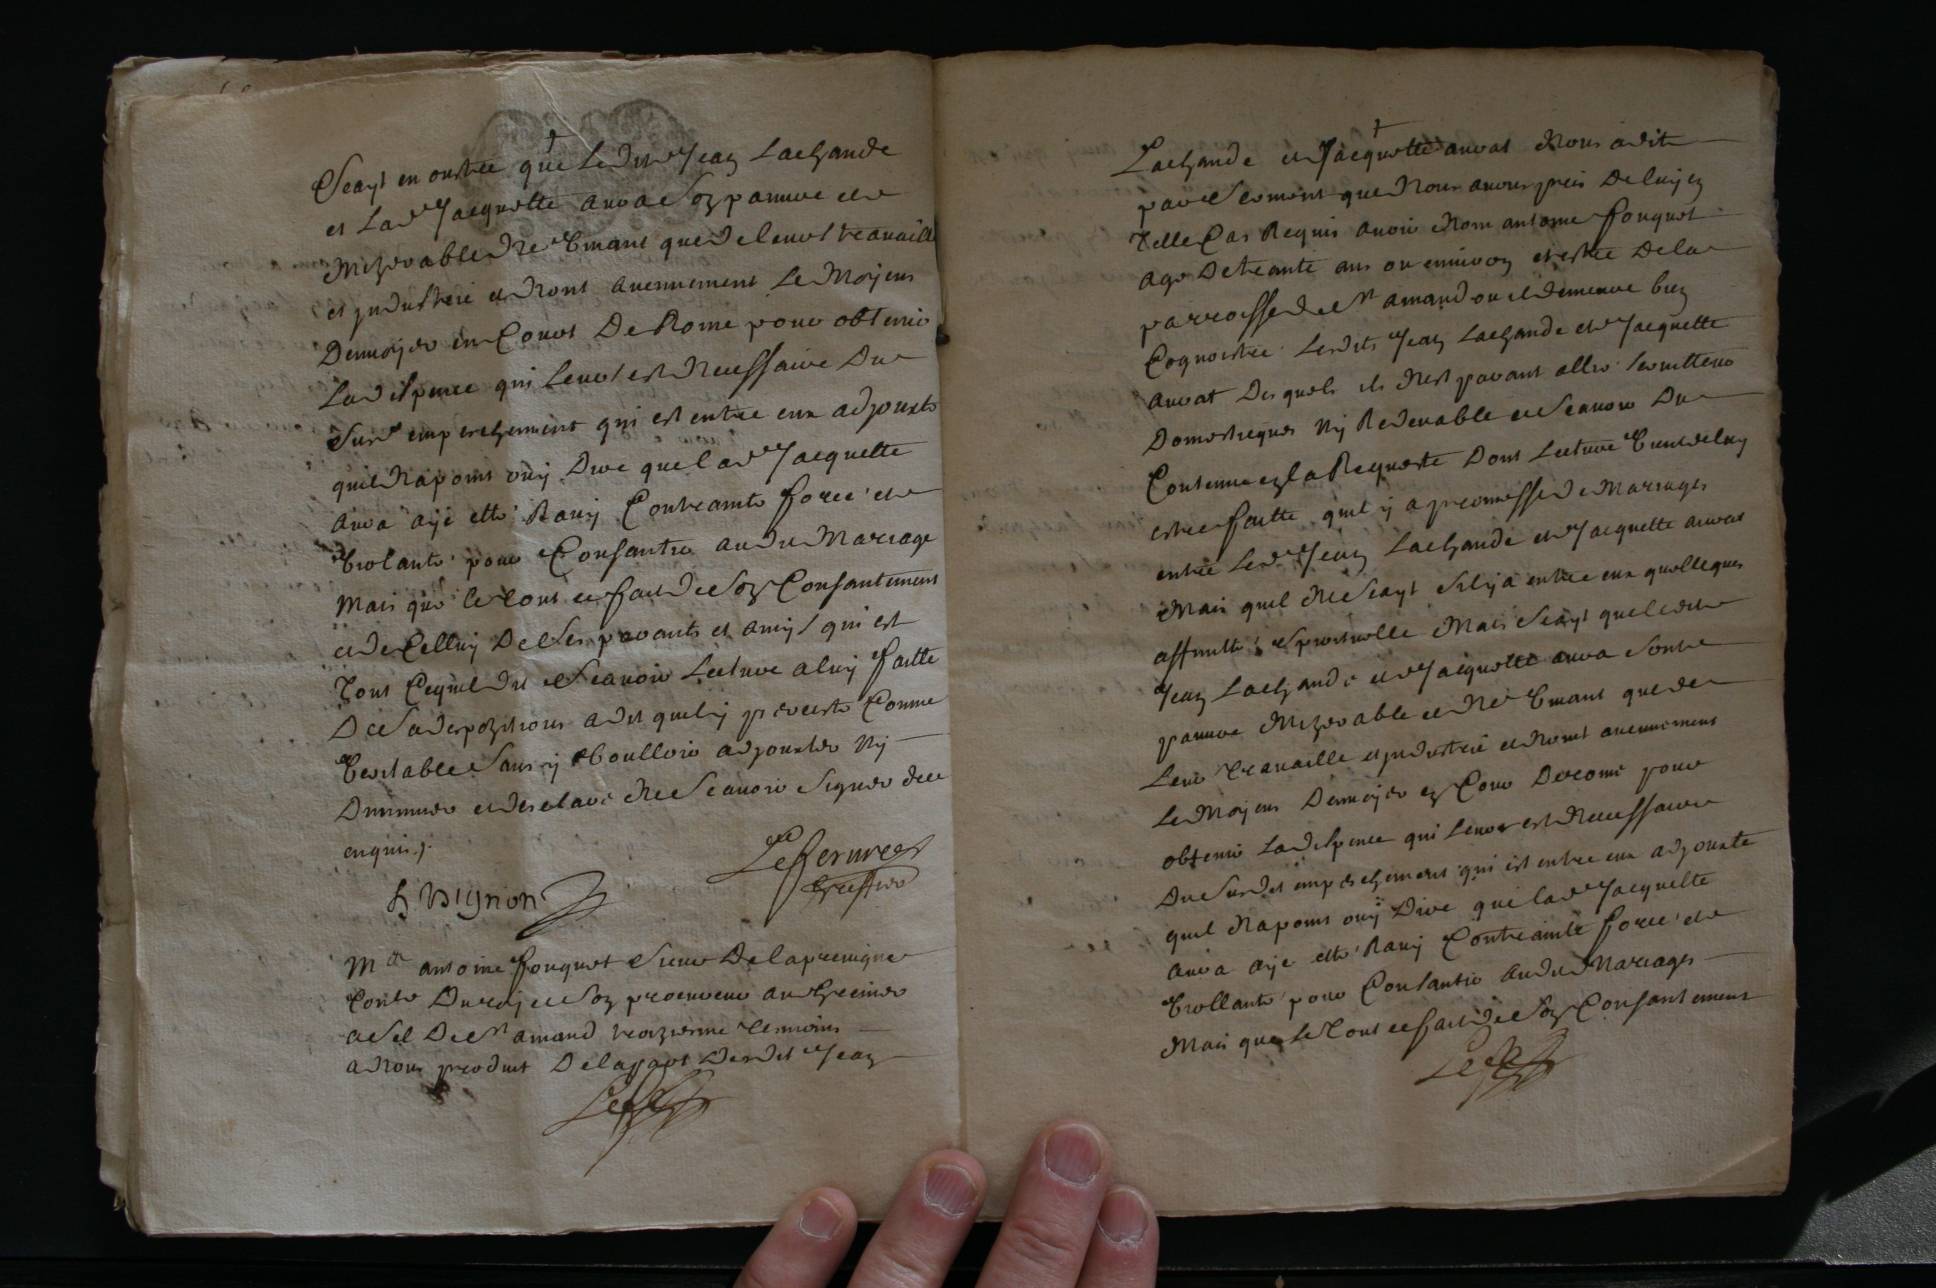 Scayt en oustre que ledit Jean Lachande
et lad Jacquette auva son pauvre et
mizerable ne vivant que de leur travaille
et industrie et nont aucunement le moyens
denvoyer en Cour de Rome pour obtenir
la dispence qui leur est necessaire du
surd empeschement qui est entre eux adjouste
quil na point ouy dire que lad Jacquette
auva aye este ravy contrainte force et
violante pour consantir audit mariage
mais que le tout ce fait de son consantement
et de celluy de ses parants et amys qui est
tout ce quil dit scavoir lecture a luy faitte
de sa depozitions a dit quil y persiste comme
veritable sans y voulloir adjouster ny
diminuer et declare ne scavoir signer de ce
enquis
h vignon
greffier
Mtre antoine fouquet sieur de la
Conser du roy et son procureur au grenier
a sel de St amand troizieme tesmoins
a nous produit de la part desdit Jean
Lachande et Jacquette auvat nous a dit
par serment que nous avons pris de luy en
telle cas requis avoir nom antoine fouquet
age de trante ans ou environ et estre de la
parroisse de St amand ou il demeure bien
cognoistre lesdits Jean Lachande et Jacquette
auvat desquels il nest parant allie serviteur
domestiques ny redevable et scavoir du
contenu en la requeste dont lecture
estre faitte quil y a promesse de mariages
entre led Jean Lachande et Jacquette auvat
mais quil ne scayt sil y a entre eux quelleques
affinitte spirituelle mais scayt que led
Jean Lachande et Jacquette auva sont
pauvre mizerable et ne vivant que de
leur travaille et industrie et nont aucunement
le moyens denvoyer en Cour de rome pour
obtenir la dispence qui leur est necessaire
du susdit empeschement qui est entre eux adjouste
quil na point ouy dire que lad Jacquette
auva aye este ravy contrainte force et
viollante pour consantir audit mariages
mais que le tout ce fait de son consantement